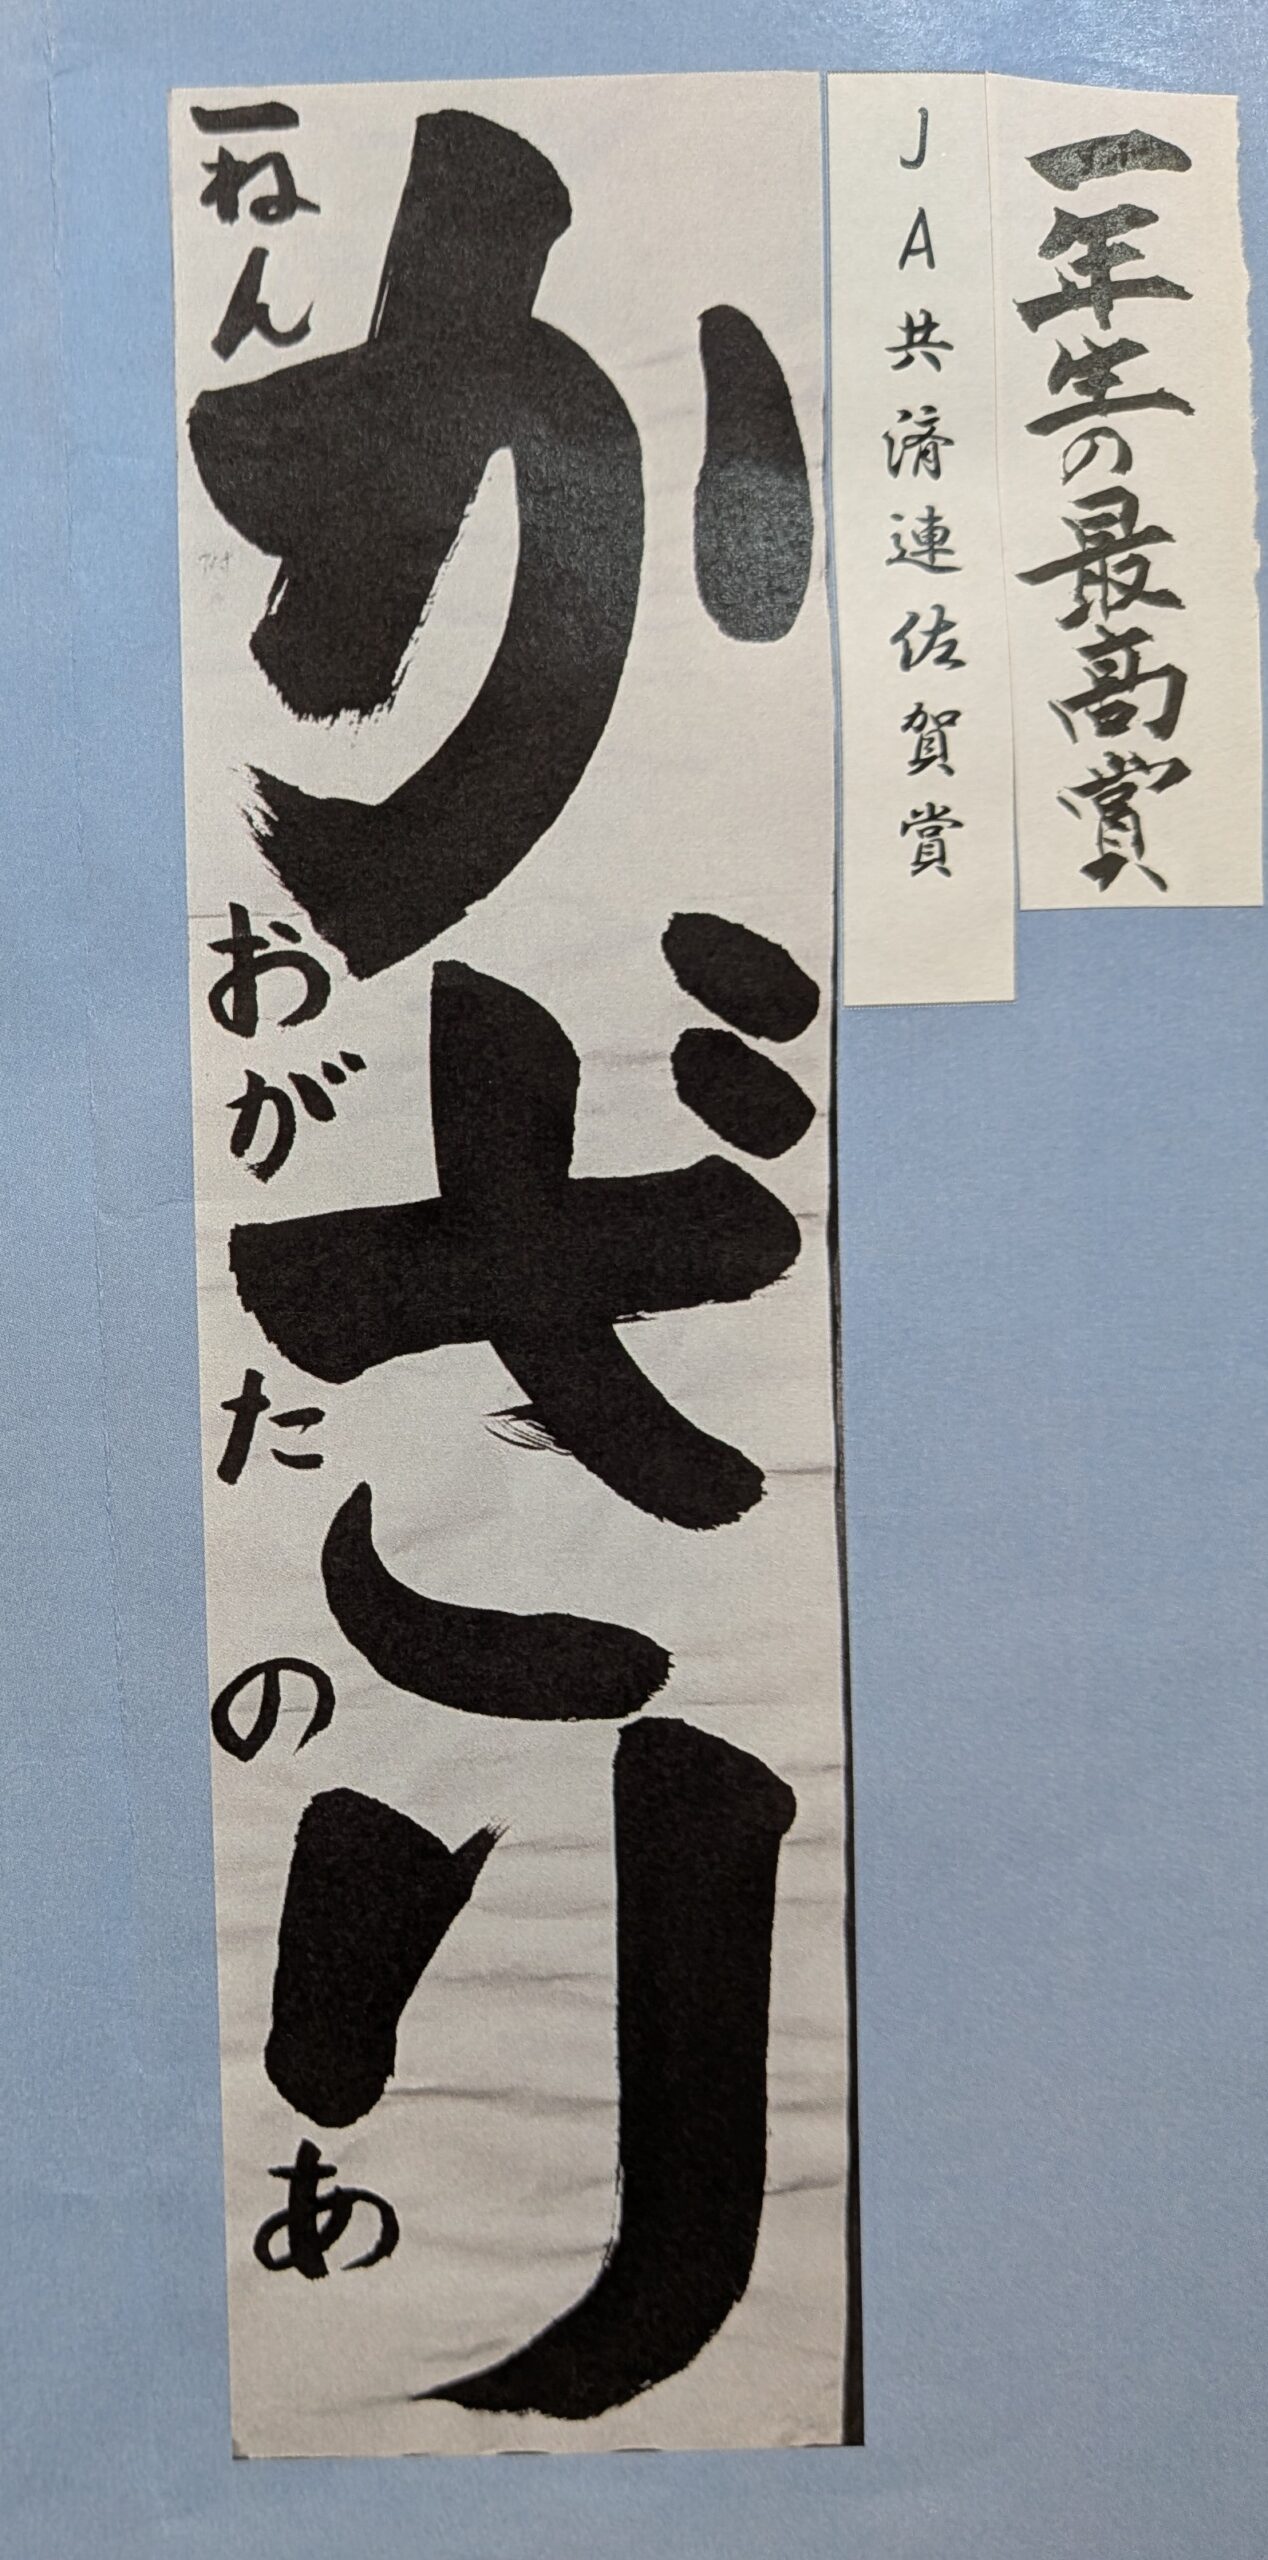 一年生の最高賞
JA共済連佐賀賞
かざり
一ねん おがた のあ